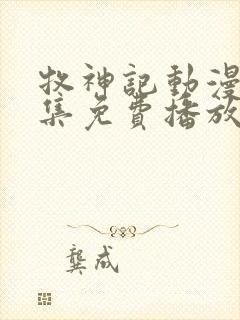 牧神記動漫
集免費播放
龔成